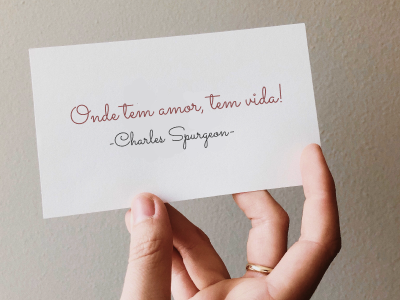 Onde tem amor, tem vida!
-Charles Spurgeon-